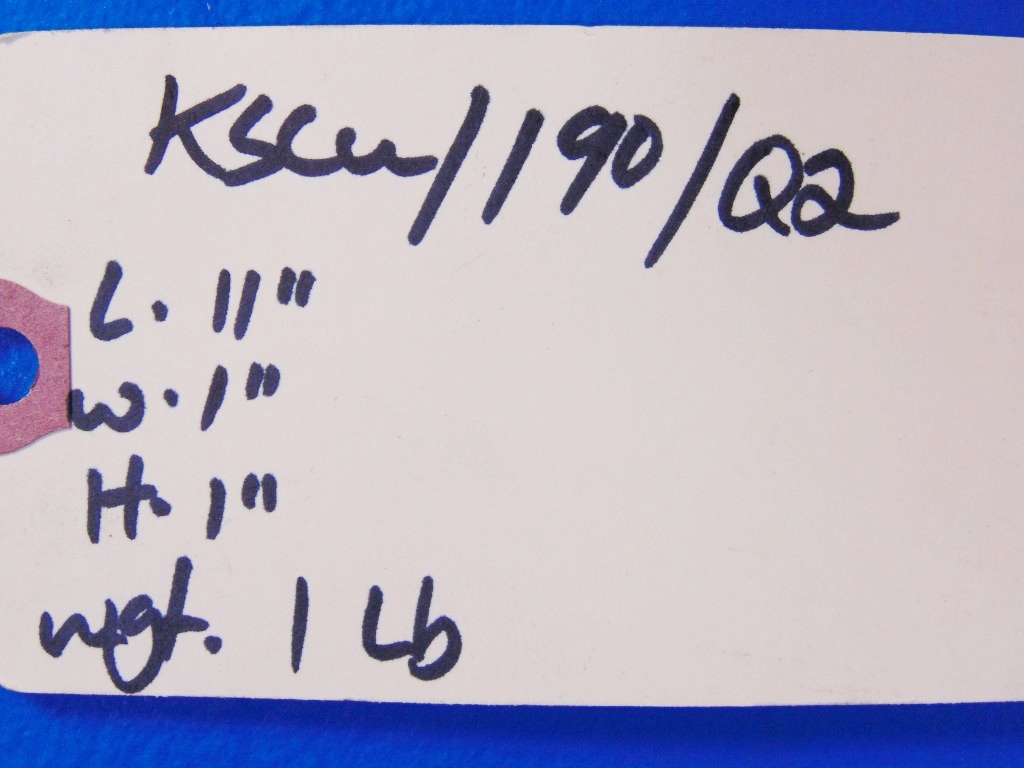 KSCU/190/Q2
L. 11"
W. 1"
H. 1"
wgt. 1 Lb